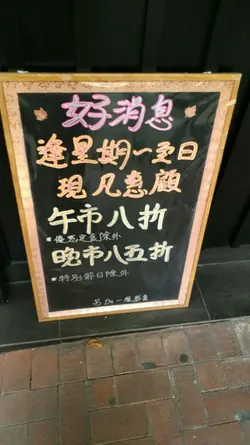 好消息
逢星期一至日
現凡惠顧
午市八折
*優惠定食除外
晚市八五折
*特別節日除外
另加一服務費